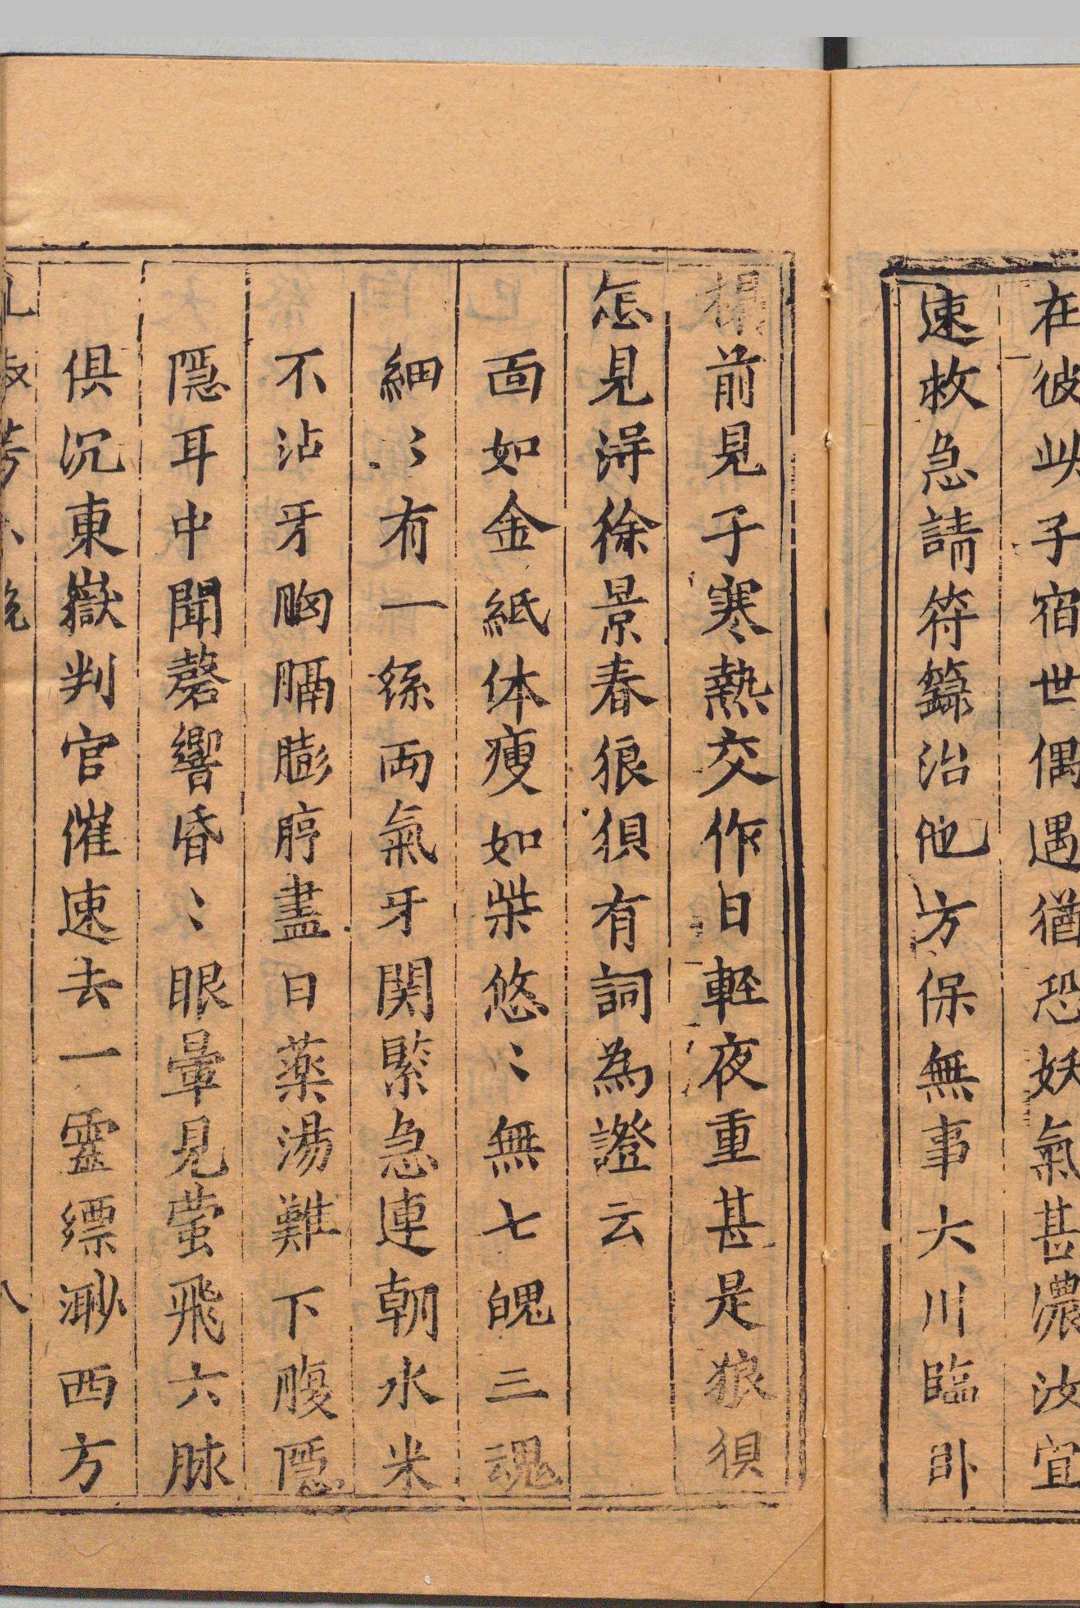 在彼此子宿世偶遇猶恐妖氣甚濃汝宜
速救急請符籙治他方保無事大川臨卧
榻前見子寒熱交作日輊夜重甚是狼狽
怎見淂徐景春狼狽有詞為證云
面如金紙体瘦如柴悠〻無七魄三魂
細〻有一絲両氣牙関緊急連朝水米
不沾牙胸膈膨脝盡日藥湯難下腹隱
隱耳中聞磬響昏〻眼暈見螢飛六脉
俱沉東嶽判官催速去一靈縹渺西方